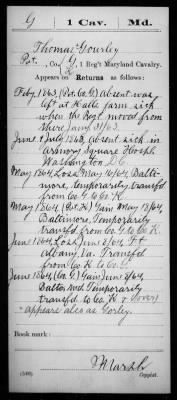 G 1 Cav. Md.
Thomas Gourley
Pvt., Co. G, 1 Reg't Maryland Cavalry.
Appears on Returns as follows:
Feby 1863, (Pvt. Co. G) Absent was
left at Halls farm sick
when the Regt moved from
there Jany 31/63.
June & July 1863, Absent sick in
Armory Square Hosptl.
Washington D.C.
May 1864, Loss May 16/64, Balti-
more, Temporarily transfd
from Co. G to K.
May 1864, (Pvt. K) Gain May 18/64,
Baltimore, Temporarily
transfd from Co. G to Co. K.
June 1864, Loss June 8/64, Ft
Albany, Va. Transfd
from Co. K to Co. G.
June 1864, (Co. G) Gain June 8/64,
Balto Md. Temporarily
transfd to Co. K
appears also as Gorley.
Book mark:
Marsh
(546) Copyist.